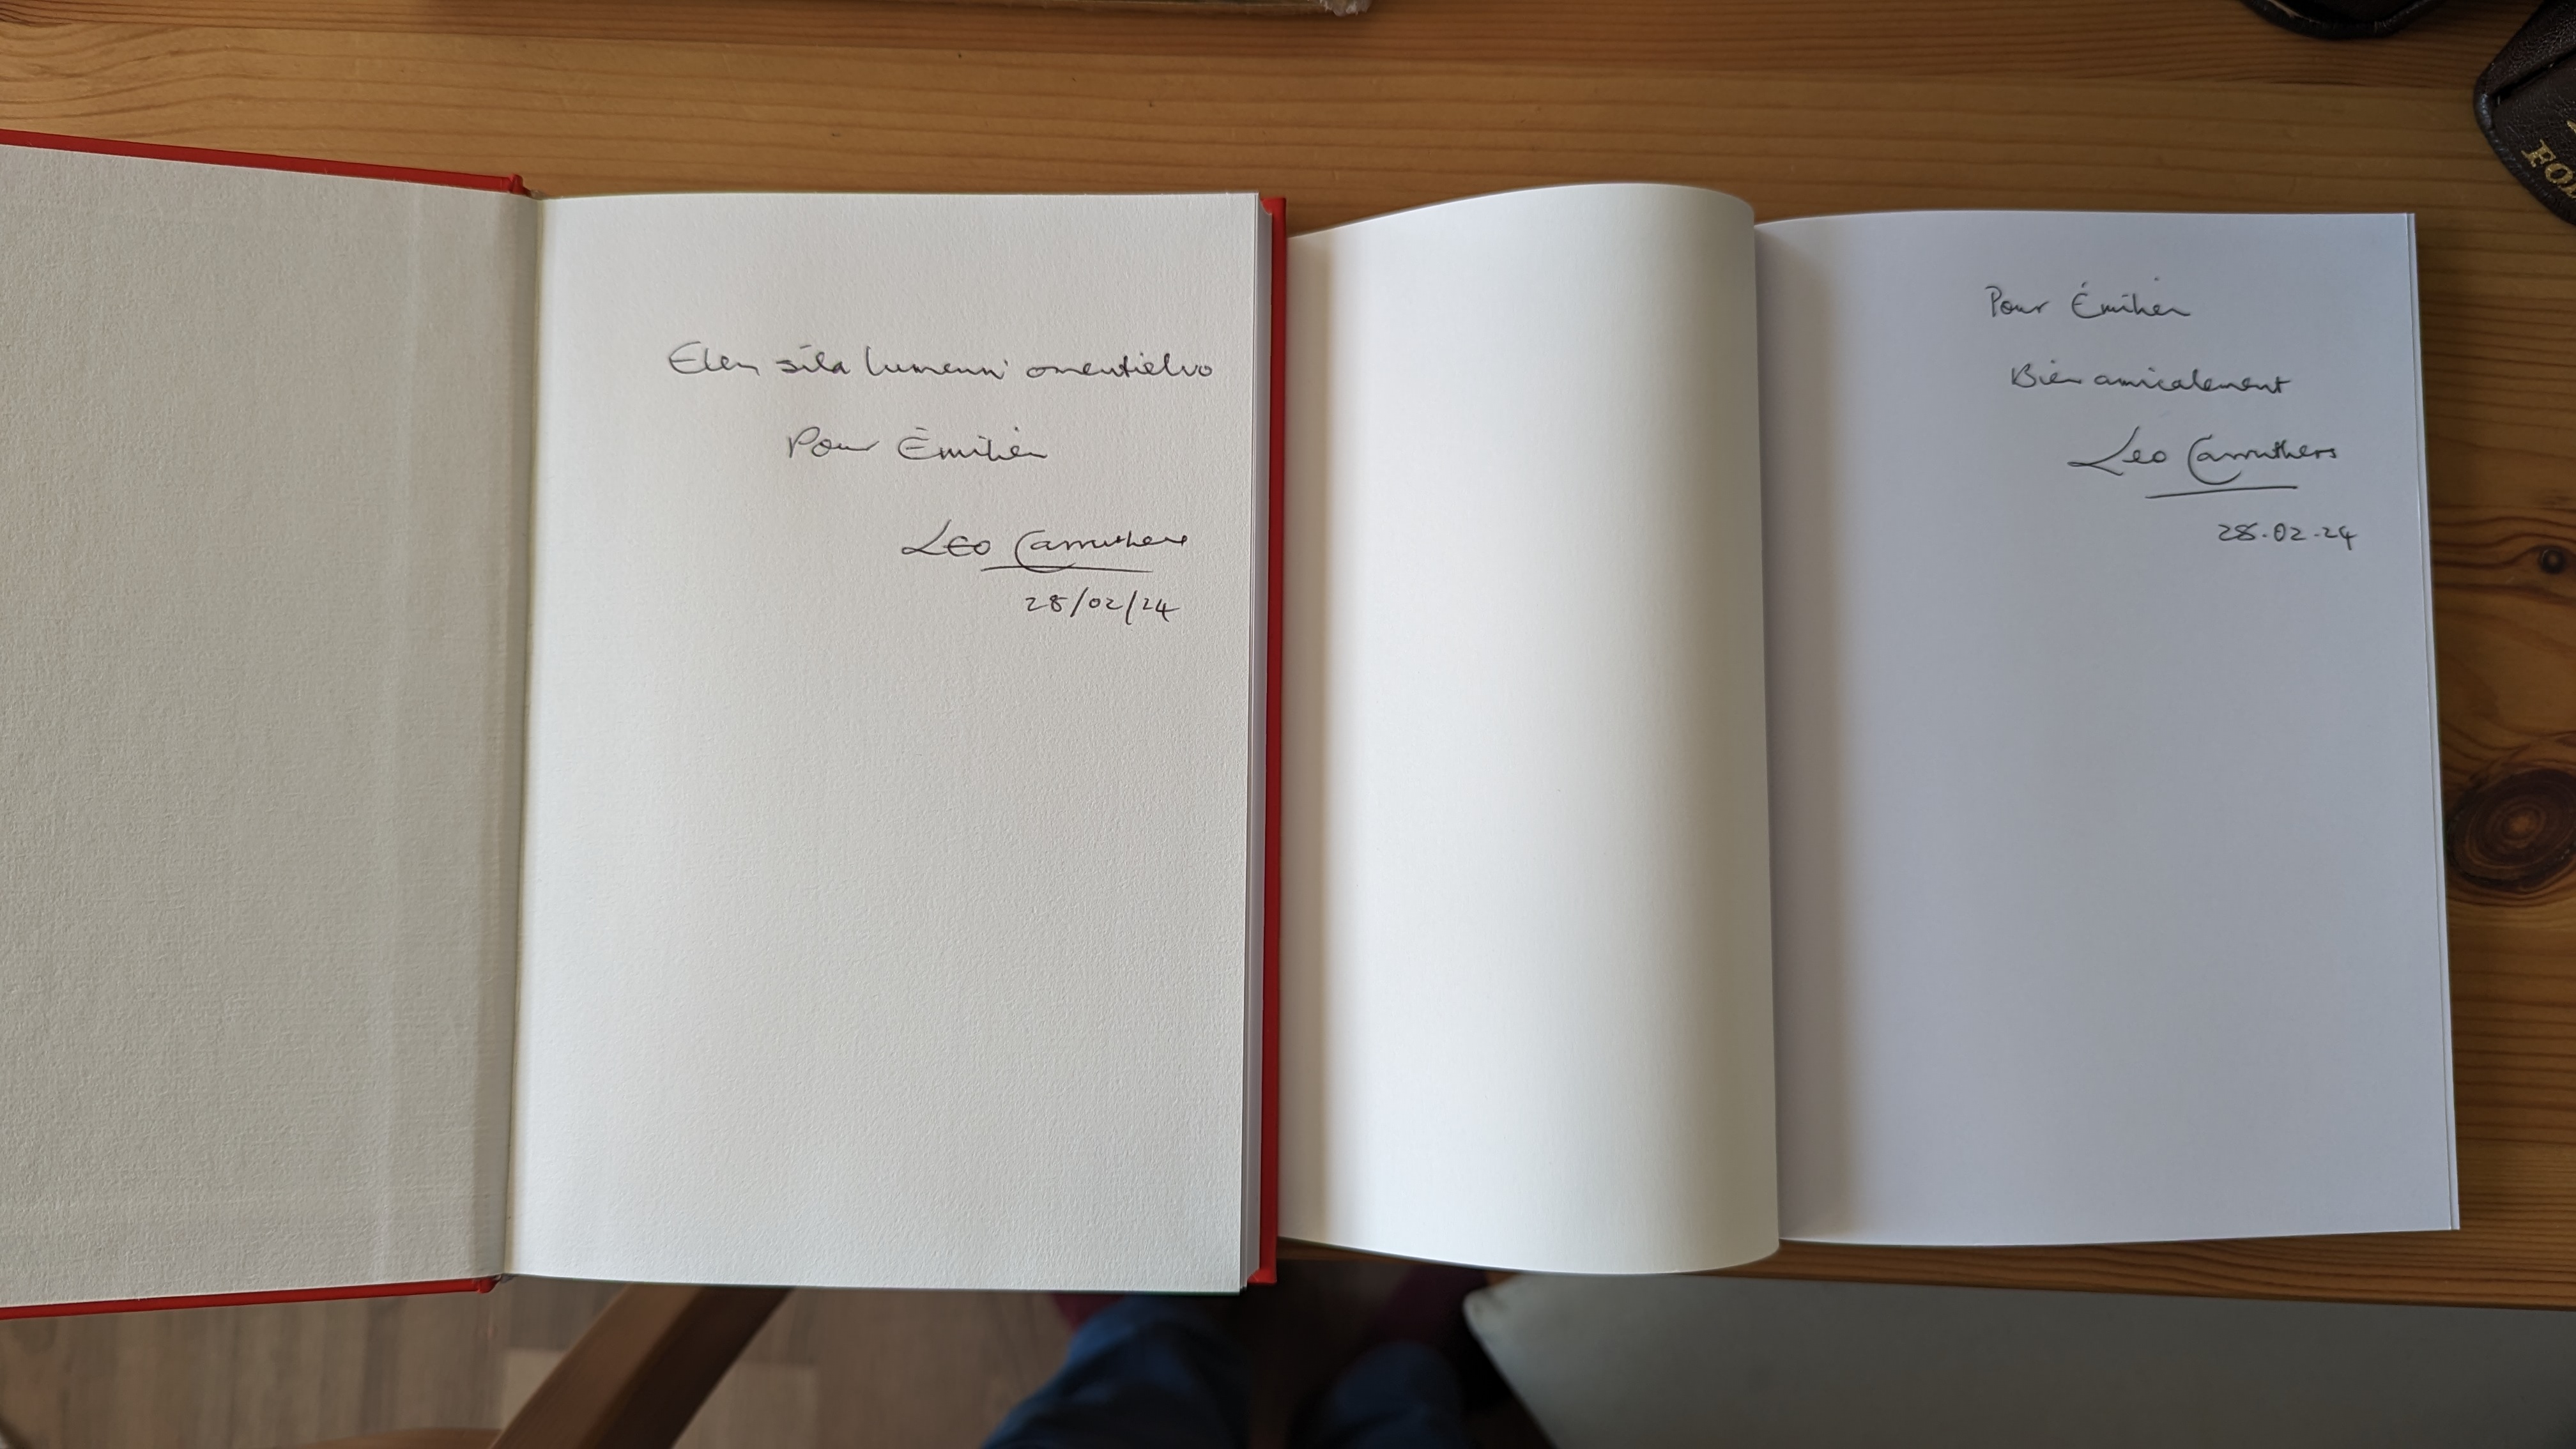 Elen síla lumenn' omentielvo
Pour Émilien
Leo Carruthers
28/02/24
Pour Émilien
Bien amicalement
Leo Carruthers
28.02.24